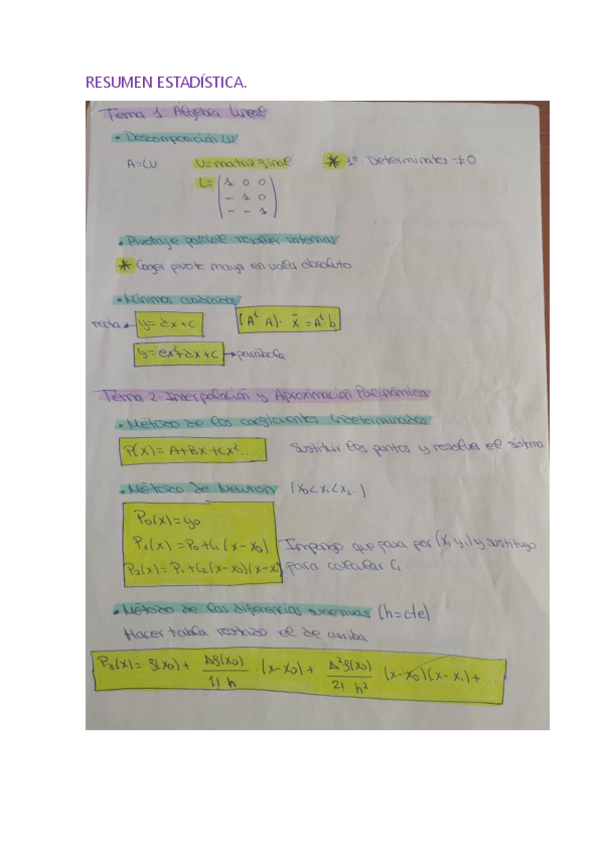 RESUMEN ESTADÍSTICA.
Tema 1 Algebra Lineal
• Descomposición LU
A=LU U=matriz final * 1º Determinates ≠0
L= ( 1 0 0
- 1 0
- - 1 )
• Pivotaje parcial resolver sistemas
* Coger pivote mayor en valor absoluto
• Mínimos cuadrados
recta→ y=ax+c (Aᵗ·A)· x̄ =Aᵗ·b
y=ex²+ax+c →parábola
Tema 2. Interpolación y Aproximación Polinómica
• Método de los coeficientes indeterminados
P(x)= A+BX+CX².... Sustituir los puntos y resolver el sistema
• Método de Newton (x₀<x₁<x₂..)
P₀(x)=y₀
P₁(x)=P₀+C₁(x-x₀) Impongo que pasa por (x₁ y₁) y sustituyo
P₂(x)=P₁+C₂(x-x₀)(x-x₁) para calcular C₁
• Método de las diferencias sucesivas (h=cte)
Hacer tabla restando el de arriba
P₃(x)= f(x₀)+ Δf(x₀)/1! h ·(x-x₀)+ Δ²f(x₀)/2! h² ·(x-x₀)(x-x₁)+...